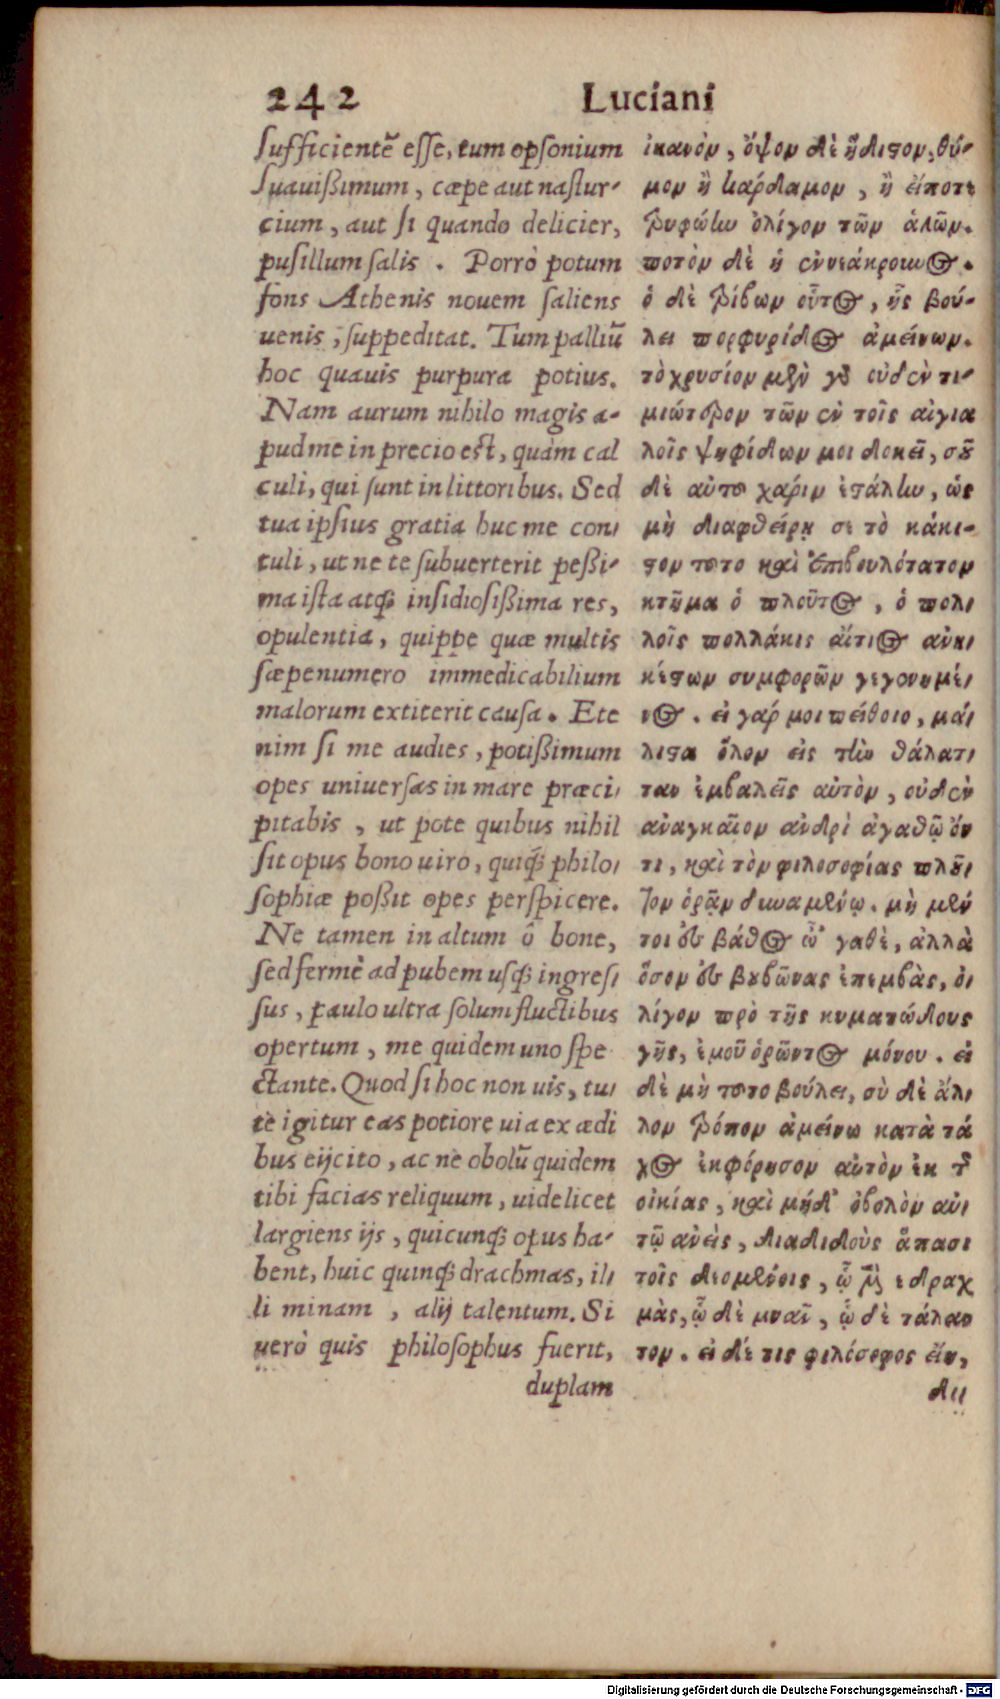 242 Luciani
sufficientē esse, tum opsonium
suauißimum, cæpe aut nastur-
cium, aut si quando delicier,
pusillum salis. Porrò potum
fons Athenis nouem saliens
uenis, suppeditat. Tum palliū
hoc quauis purpura potius.
Nam aurum nihilo magis a-
pud me in precio est, quàm cal
culi, qui sunt in littoribus. Sed
tua ipsius gratia huc me con-
tuli, ut ne te subuerterit peßi-
ma ista atq; insidiosißima res,
opulentia, quippe quæ multis
sæpenumero immedicabilium
malorum extiterit causa. Ete
nim si me audies, potißimum
opes uniuersas in mare præci-
pitabis, ut pote quibus nihil
sit opus bono uiro, quiq; philo-
sophiæ poßit opes perspicere.
Ne tamen in altum ô bone,
sed fermè ad pubem usq; ingres-
sus, paulo ultra solum fluctibus
opertum, me quidem uno spe
ctante. Quod si hoc non uis, tu-
te igitur eas potiore uia ex ædi
bus eijcito, ac ne obolū quidem
tibi facias reliquum, uidelicet
largiens ijs, quicunq; opus ha-
bent, huic quinq; drachmas, il-
li minam, alij talentum. Si
uerò quis philosophus fuerit,
duplam
ἱκανὸν, ὄψον δὲ ἥδιστον, θύ-
μον ἢ κάρδαμον, ἢ εἴποτε
τρυφώην ὀλίγον τῶν ἁλῶν.
ποτὸν δὲ ἡ ἐννεάκρουνος.
ὁ δὲ τρίβων οὗτος, ἧς βού-
λει πορφυρίδος ἀμείνων.
τὸ χρυσίον μὲν γὰρ οὐδὲν τι-
μιώτερον τῶν ἐν τοῖς αἰγια
λοῖς ψηφίδων μοι δοκεῖ, σοῦ
δὲ αὐτοῦ χάριν ἐστάλην, ὡς
μὴ διαφθείρῃ σε τὸ κάκι-
στον τοῦτο καὶ ἐπιβουλότατον
κτῆμα ὁ πλοῦτος, ὁ πολ-
λοῖς πολλάκις αἴτιος ἀνη-
κέστων συμφορῶν γεγενημέ-
νος. εἰ γάρ μοι πείθοιο, μά-
λιστα ὅλον εἰς τὴν θάλατ-
ταν ἐμβαλεῖς αὐτὸν, οὐδὲν
ἀναγκαῖον ἀνδρὶ ἀγαθῷ ὄν
τι, καὶ τὸν φιλοσοφίας πλοῦ-
τον ὁρᾷν δυναμένῳ. μὴ μέν
τοι ἐς βάθος ὦ' γαθὲ, ἀλλὰ
ὅσον ἐς βουβῶνας ἐπεμβὰς, ὀ-
λίγον πρὸ τῆς κυματώδους
γῆς, ἐμοῦ ὁρῶντος μόνου. εἰ
δὲ μὴ τοῦτο βούλει, σὺ δὲ ἄλ-
λον τρόπον ἀμείνω κατὰ τά
χος ἐκφόρησον αὐτὸν ἐκ τῆς
οἰκίας, καὶ μήδ' ὀβολὸν αὑ-
τῷ ἀνεὶς, διαδιδοὺς ἅπασι
τοῖς δεομένοις, ᾧ μὲν ε δραχ
μὰς, ᾧ δὲ μναῖ, ᾧ δὲ τάλαν
τον. εἰ δέ τις φιλόσοφος εἴη,
δι-
Digitalisierung gefördert durch die Deutsche Forschungsgemeinschaft - DFG